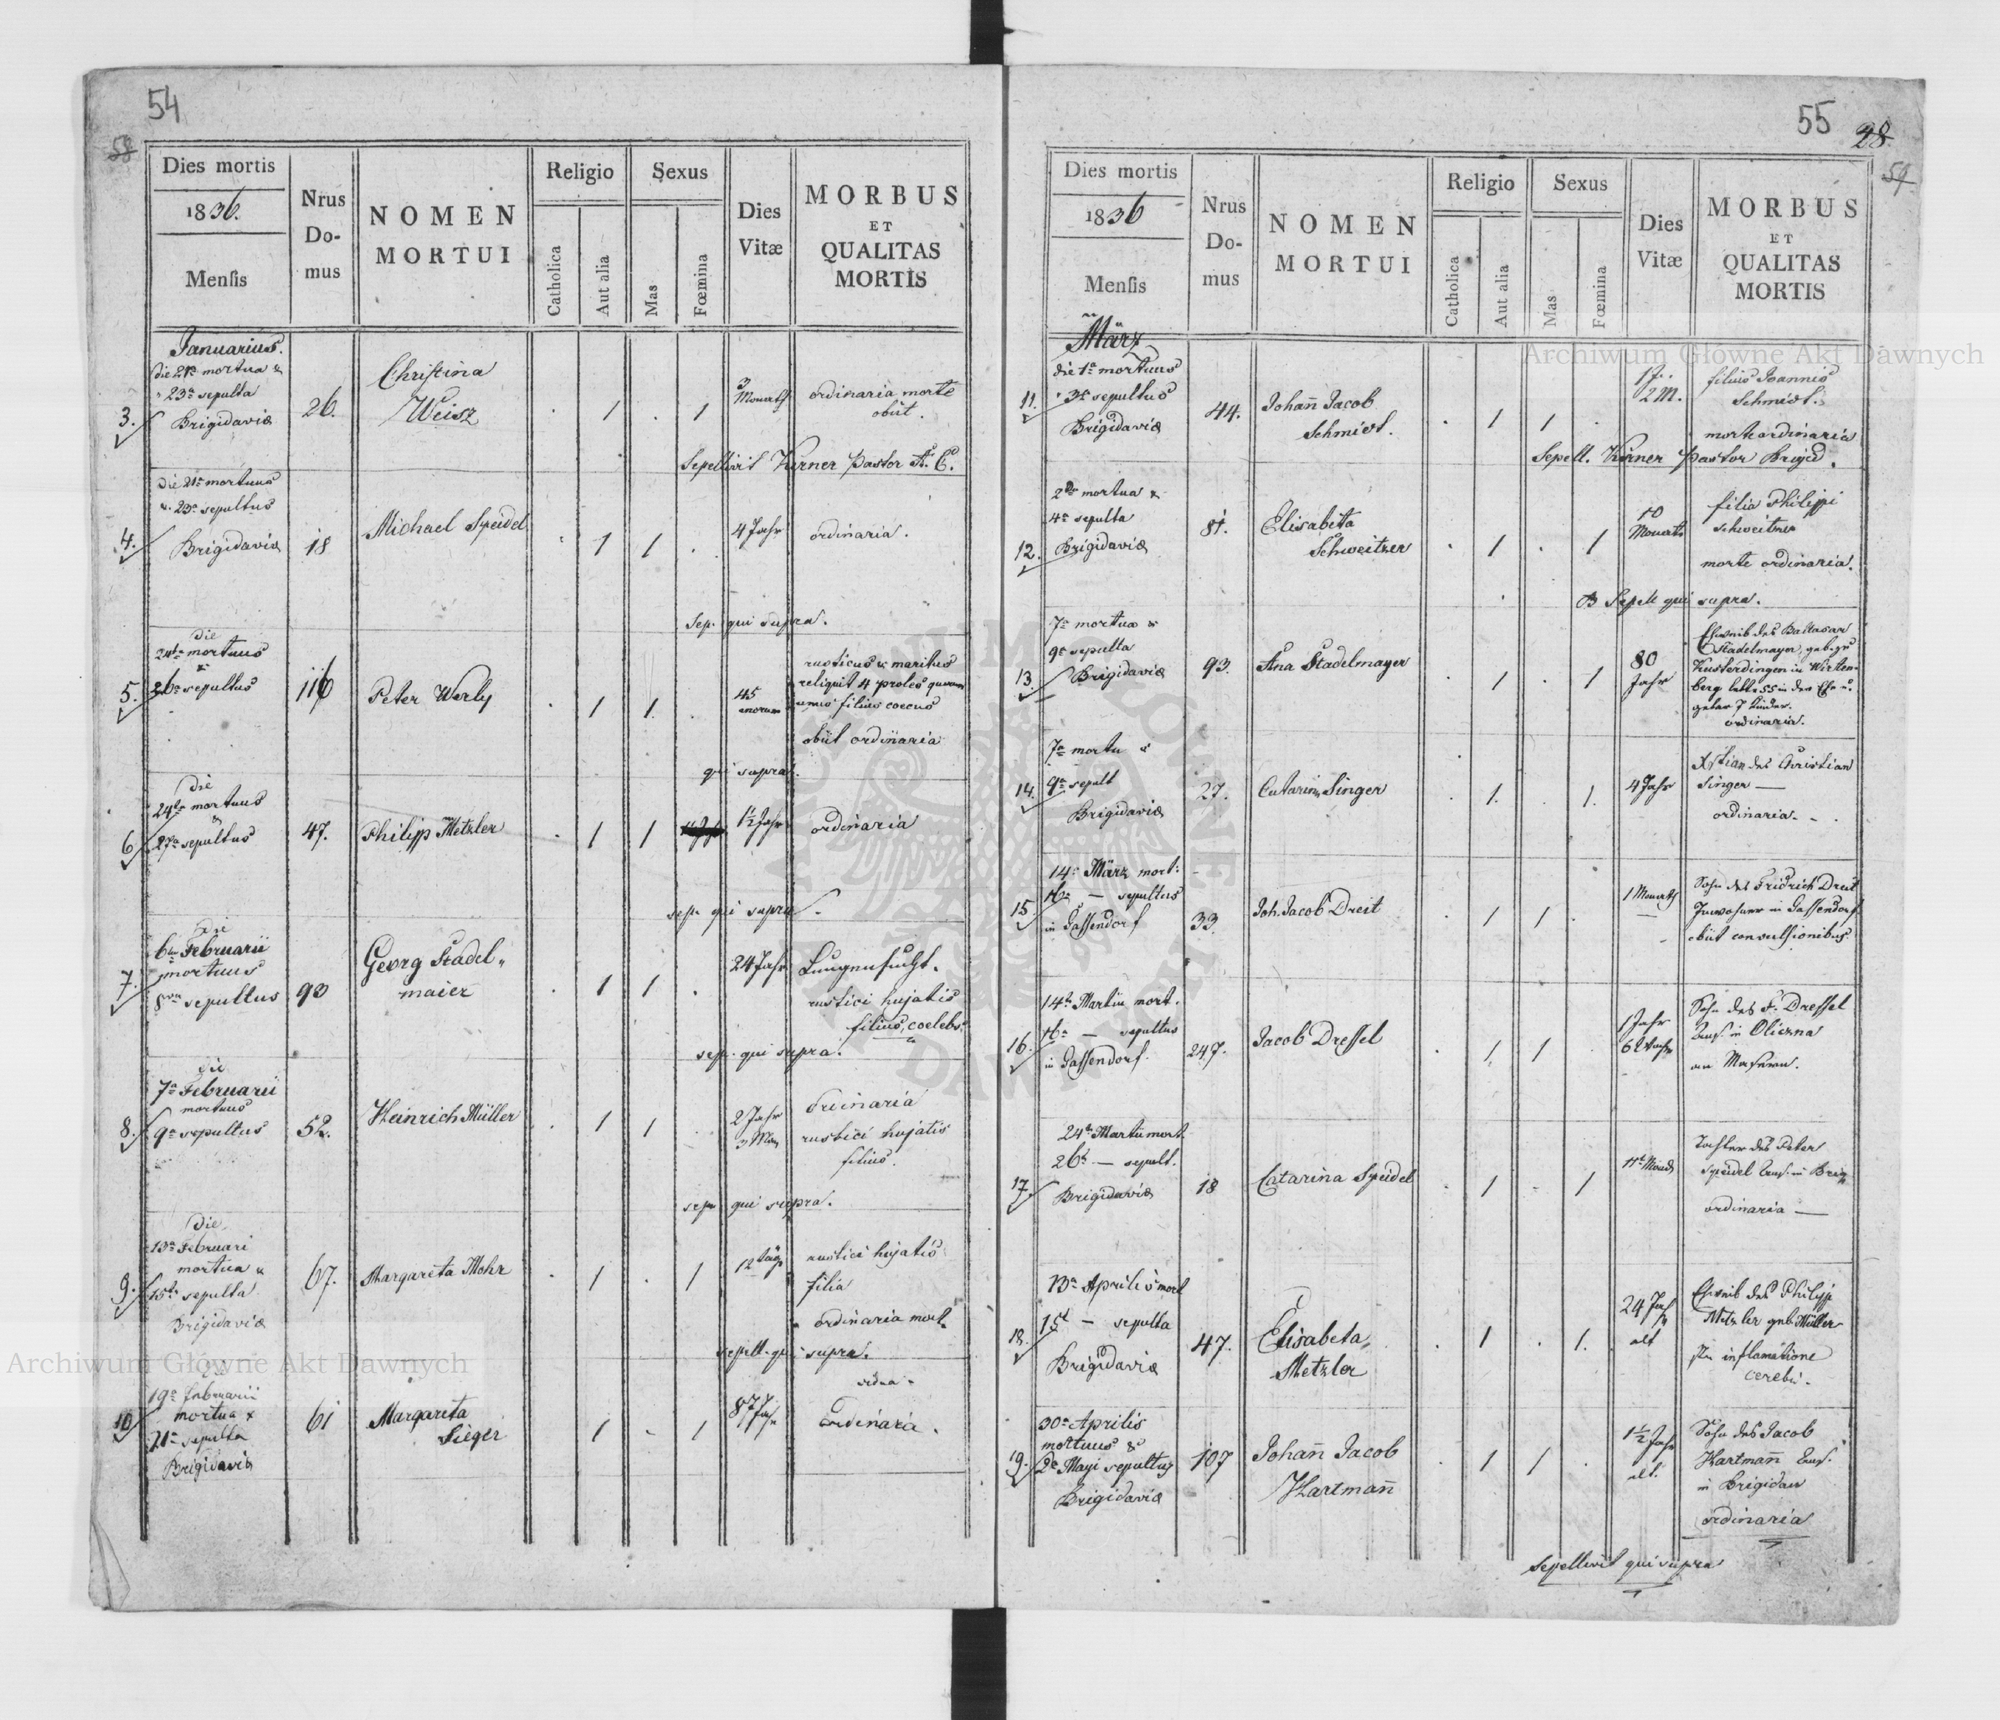 54
58
Dies mortis
1836.
Mensis
Nrus Domus
NOMEN MORTUI
Religio
Catholica
Aut alia
Sexus
Mas
Fœmina
Dies Vitæ
MORBUS
ET
QUALITAS
MORTIS
Januarius.
3. die 21a mortua & 23a sepulta Brigidaviæ 26. Christina Weisz . 1 . 1 3 Monath ordinaria morte obiit.
Sepelivit Kirner Pastor A. C.
4. Die 21a mortuus & 23a sepultus Brigidaviæ 18 Michael Speidel . 1 1 . 4 Jahr ordinaria.
Sep. qui supra.
5. die 24ta mortuus & 26a sepultus 116 Peter Werly . 1 1 . 45 annorum rusticus & maritus reliquit 4 proles quorum unus filius coecus obiit ordinaria
qui supra.
6 die 24ta mortuus & 27a sepultus 47. Philipp Metzler . 1 1 1½ Jahr ordinaria
sep. qui supra.
7. die 6ta Februarii mortuus 8va sepultus 93 Georg Stadelmaier . 1 1 . 24 Jahr Lungensucht. rustici hujatis filius, coelebs.
sep. qui supra.
8. die 7a Februarii mortuus 9a sepultus 52. Heinrich Müller . 1 1 . 2 Jahr 3 Mon Ordinaria rustici hujatis filius.
sep. qui supra.
9. die 13a Februari mortua & 15ta sepulta Brigidaviæ 67. Margareta Mohr . 1 . 1 12 Täge rustici hujatis filia ordinaria mort.
sepelt. qui supra.
10 19a Februarii mortua & 21a sepulta Brigidaviæ 61 Margareta Sieger 1 . 1 87 Jahr vidua. ordinaria.
55
28.
59
Dies mortis
1836
Mensis
Nrus Domus
NOMEN MORTUI
Religio
Catholica
Aut alia
Sexus
Mas
Fœmina
Dies Vitæ
MORBUS
ET
QUALITAS
MORTIS
März
11. die 1a mortuus 3a sepultus Brigidaviæ 44. Johañ Jacob Schmidt. . 1 1 . 1 J. 2 M. filius Joannis Schmidt. morte ordinaria
Sepelt. Kirner Pastor Brigid.
12. 2da mortua & 4a sepulta Brigidaviæ 81. Elisabeta Schweitzer . 1 . 1 10 Monath filia Philippi Schweitzer morte ordinaria.
Sepelt qui supra.
13. 7a mortua & 9a sepulta Brigidaviæ 93. Ana Stadelmayer . 1 . 1 80 Jahr Eheweib des Baltasar Stadelmayer, geb. zu Kusterdingen in Wirtenberg lebte 55 in der Ehe u. gebar 7 Kinder. ordinaria.
14. 7a mortu & 9a sepult Brigidaviæ 27. Catarina Singer . 1. . 1. 4 Jahr des Christian Singer — ordinaria.
15. 14a März mort: — sepultus in Gassendorf 33. Joh. Jacob Dreit . 1 1 . 1 Monath Sohn des Fridrich Dreit Inwohner in Gassendorf obiit convulsionibus.
16. 14ta Martii mort. — sepultus in Gassendorf. 247. Jacob Dressel . 1 1 1 Jahr 6 Woch Sohn des F. Dressel Ans. in Oliczna an Masern.
17. 24ta Martii mort. 26ta — sepult. Brigidaviæ 18 Catarina Speidel . 1 . 1 Tochter des Peter Speidel Ans. in Brig. ordinaria —
18. 13a Aprilis mort 15ta — sepulta Brigidaviæ 47. Elisabeta Metzler . 1 . 1. 24 Jahr alt Eheweib des Philipp Metzler geb. Müller inflamatione cerebri.
19. 30a Aprilis mortuus & 2da Mayi sepultus Brigidaviæ 107 Johañ Jacob Hartmañ . 1 1 . 1½ Jahr alt. Sohn des Jacob Hartmañ Ans. in Brigidau ordinaria
Sepelivit qui supra
Archiwum Główne Akt Dawnych
Archiwum Główne Akt Dawnych